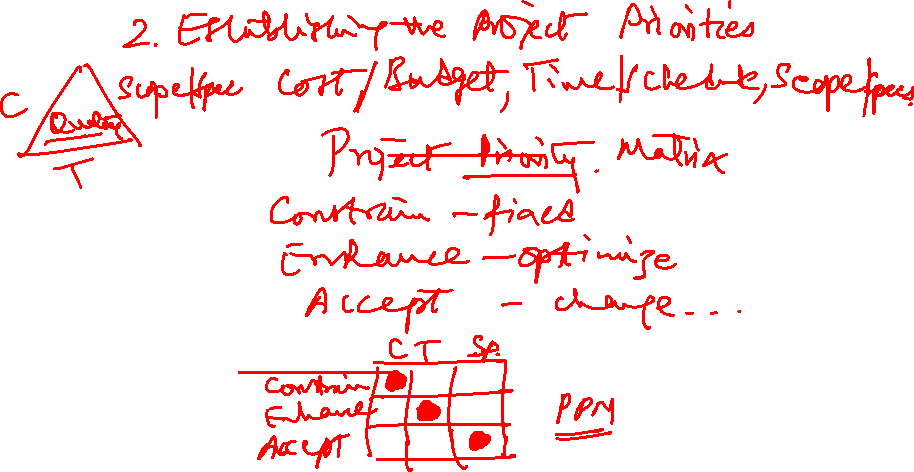 2. Establishing the Project Priorities
Scope/Spec Cost/Budget, Time/Schedule, Scope/Specs
C
Quality
T
Project Priority Matrix
Constrain - fixed
Enhance - optimize
Accept - change...
C T Sp.
Constrain
Enhance
Accept
PPM